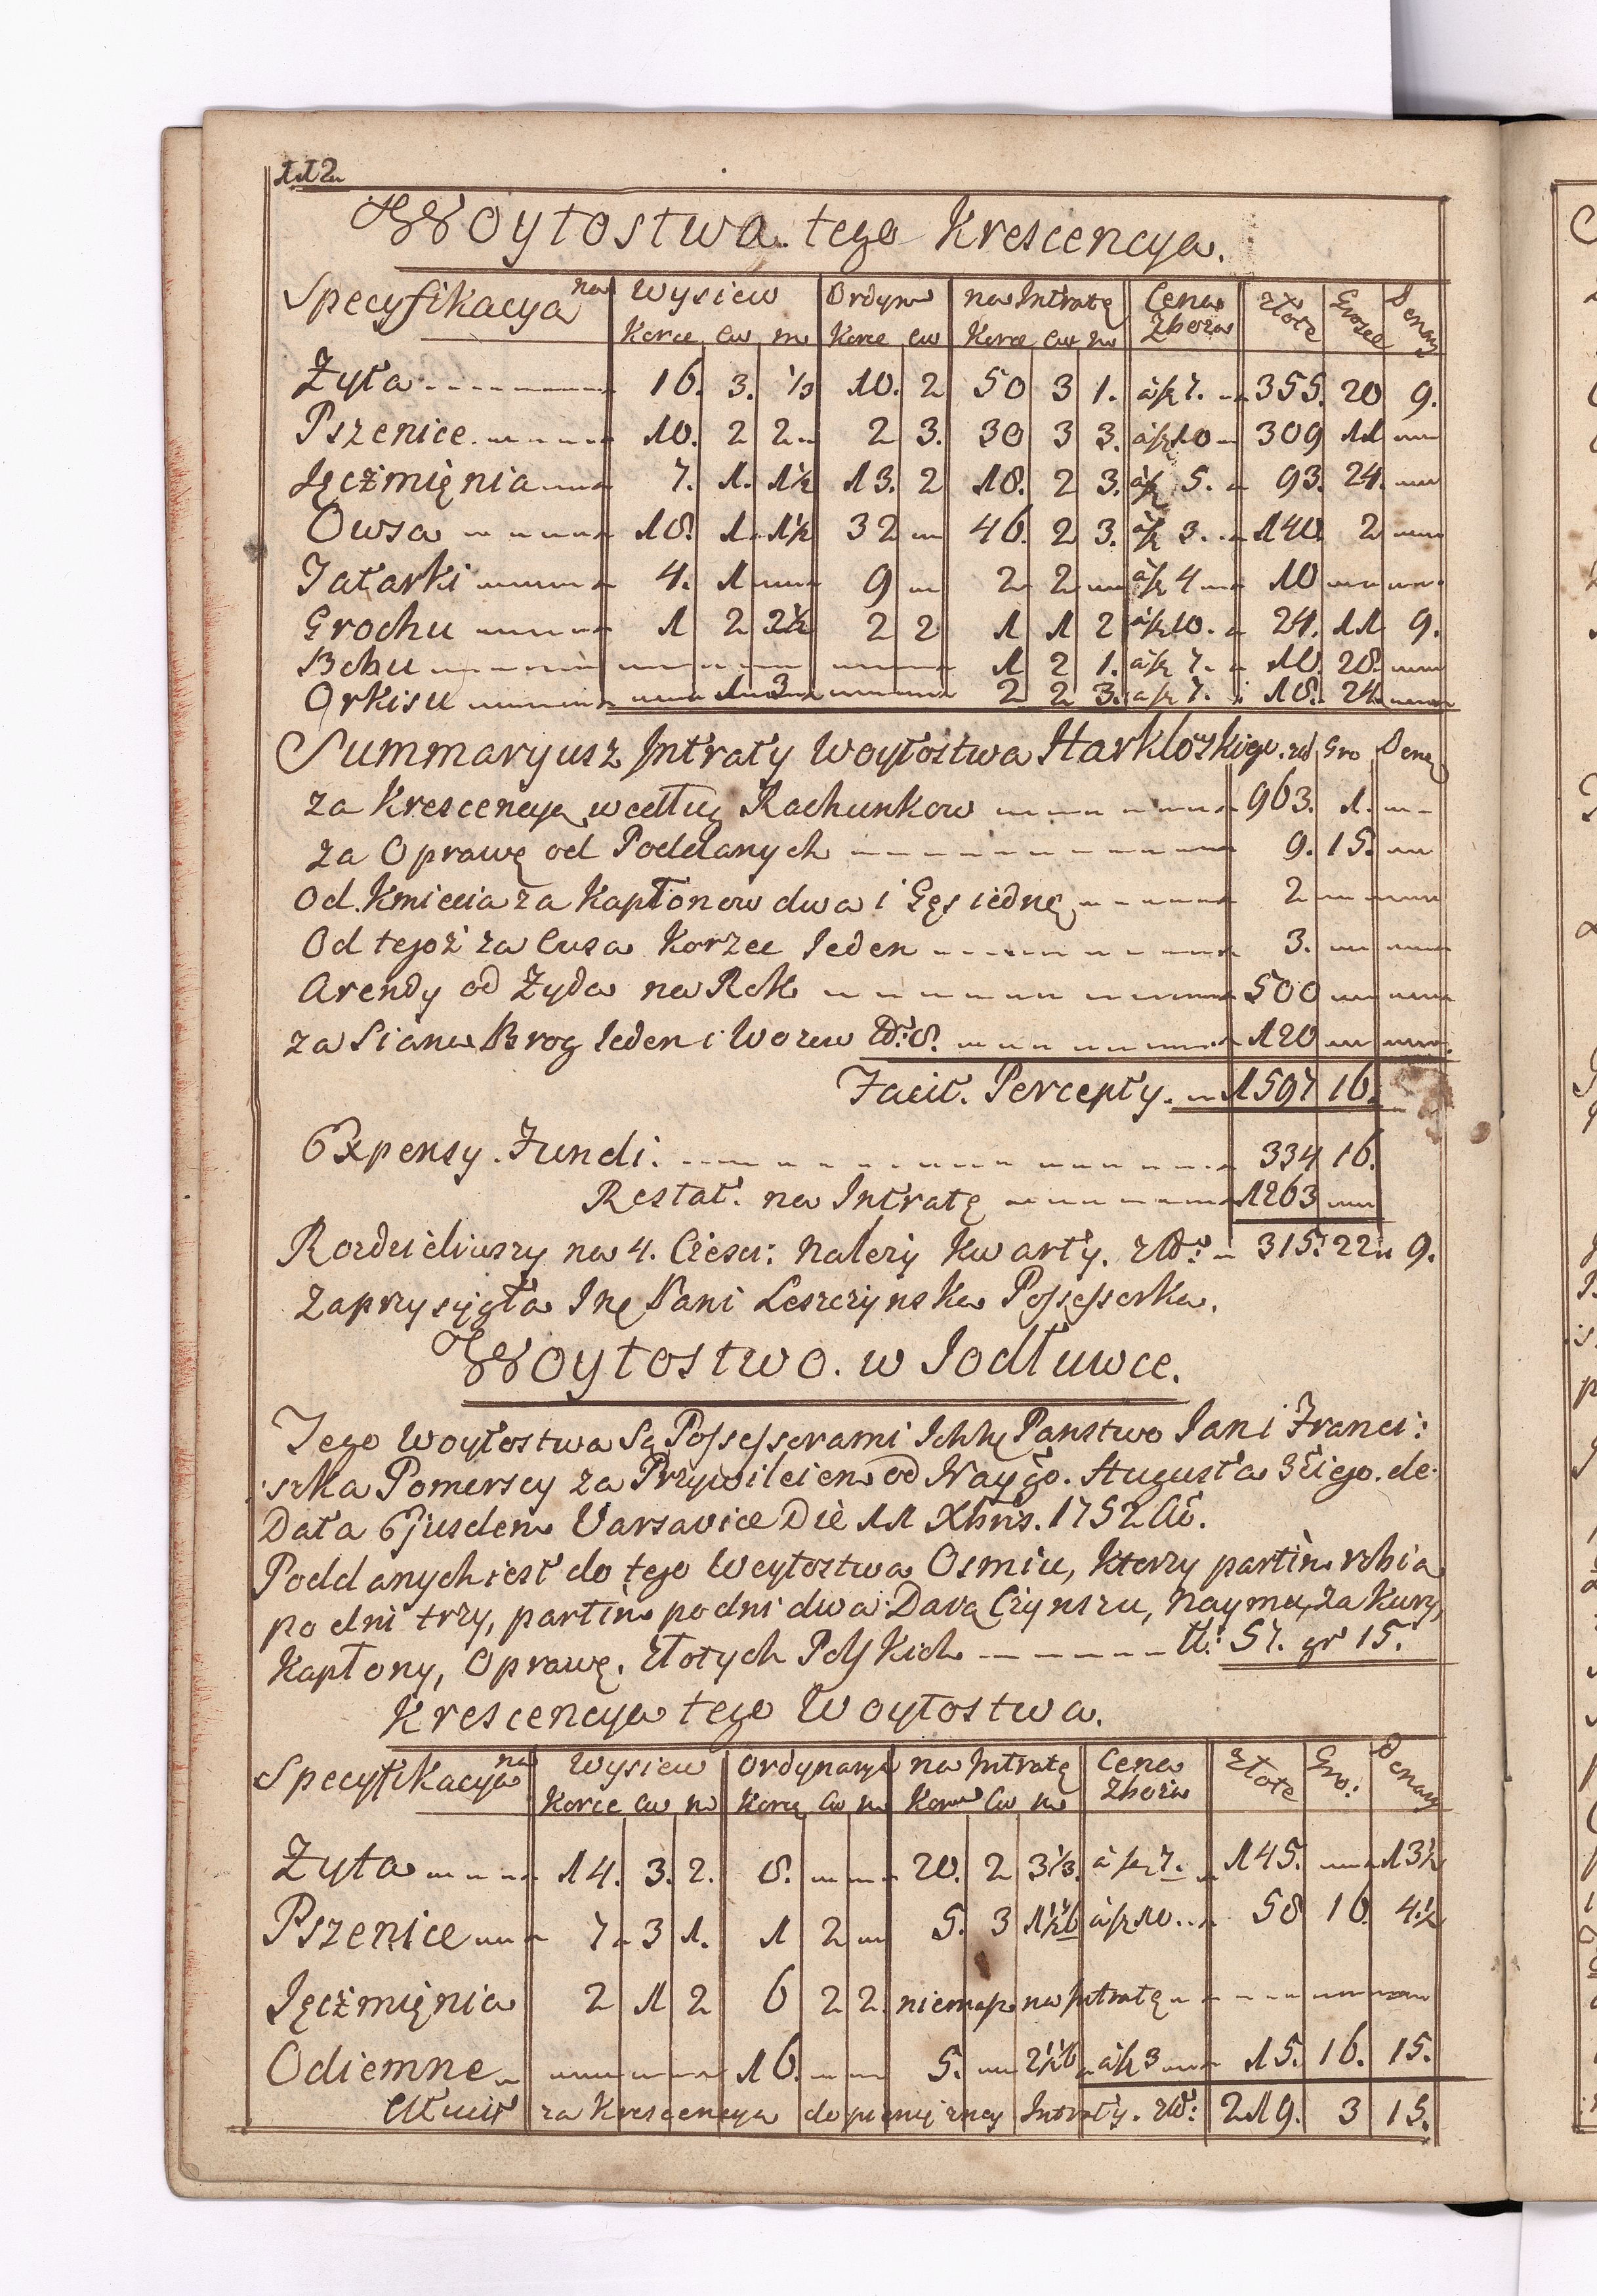 112
Woytostwa tego Krescencya.
Specyfikacya na Wysiew Ordyn na Intratę Cena Zboża Złote Grosze Denary
Korce Cw m Korce Cw Korce Cw m
Żyta 16. 3. 1/3 10. 2 50 3 1. à fl 7. 355. 20 9.
Pszenice 10. 2 2 2 3. 30 3 3. à fl 10 309 11
Jęczmięnia 7. 1. 1½ 13. 2 18. 2 3. à fl 5. 93. 24.
Owsa 18. 1 1½ 32 46. 2 3. à fl 3. 140 2
Tatarki 4. 1 9 2 2 à fl 4 10
Grochu 1 2 2½ 2 2 1 1 2 à fl 10. 24. 11 9.
Bobu 1 2 1. à fl 7. 10. 28.
Orkisu 1 3 2 2 3. à fl 7. 18. 24
Summaryusz Intraty Woytostwa Harklowskigo. zł Gro Dena
za Krescencyą według Rachunkow 963. 1.
za Oprawę od Poddanych 9. 15.
Od Kmiecia za Kapłonow dwa i Gęś iednę 2
Od tegoż za Owsa Korzec Ieden 3.
Arendy od Żyda na Rok 500
za Siana Brog Ieden i Wozow 8. 120
Facit. Percepty. 1597 16.
Expensy. Fundi. 334 16.
Restat. na Intratę 1263
Rozdzieliwszy na 4. Części: należy Kwarty. 315. 22 9.
Zaprzysięgła Pani Leszczynska Possessorka.
Woytostwo. w Jodłuwce.
Tego Woytostwa Są Possessorami Panstwo Jan i Franci:
szka Pomerscy za Przywileiem od Naygo. Augusta 3ciego. de
Data Ejusdem Varsavice Die 11 Xbris. 1752
Poddanych iest do tego Woytostwa Osmiu, Ktorzy partim robią
po dni trzy, partim po dni dwa. Davą Czynszu, Naymu, za Kury,
Kapłony, Oprawę. Złotych Polskich 57. gr 15.
Krescencya tego Woytostwa.
Specyfikacya na Wysiew Ordynaryą na Intratę Cena Zboża Złote Gro: Denary
Korce Cw m Korcy Cw m Korce Cw m
Żyta 14. 3. 2. 8. 20. 2 3⅓. à fl 7. 145. 13½
Pszenice 7 3 1. 1 2 5. 3 1½ à fl 10 58 16. 4½
Jęczmięnia 2 1 2 6 2 2. niemasz na Intratę
Odiemne 16. 5. à fl 3 15. 16. 15.
za Krescencya do pienięzney Intraty. 219. 3 15.